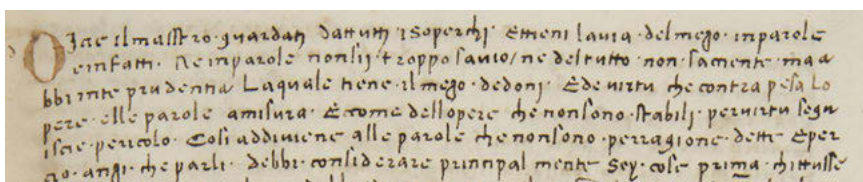 Dice il maestro · guardati da tutti i soperchi · E tieni la via · del mezo · in parole
e in fatti · Ne in parole non sij · troppo savio / ne del tutto · non · saciente · ma a
bbi in te prudentia La quale tiene · il mezo · de doni · Ed e virtu che contra pesa lo
pere · e lle parole a misura · E come dell opere che non sono · stabili · per virtu segu
iscie · pericolo · Cosi addiviene alle parole che non sono · per ragione · dette E per
cio · anzi · che parli · debbi · considerare principal mente Sey · cose prima · chi tu sse